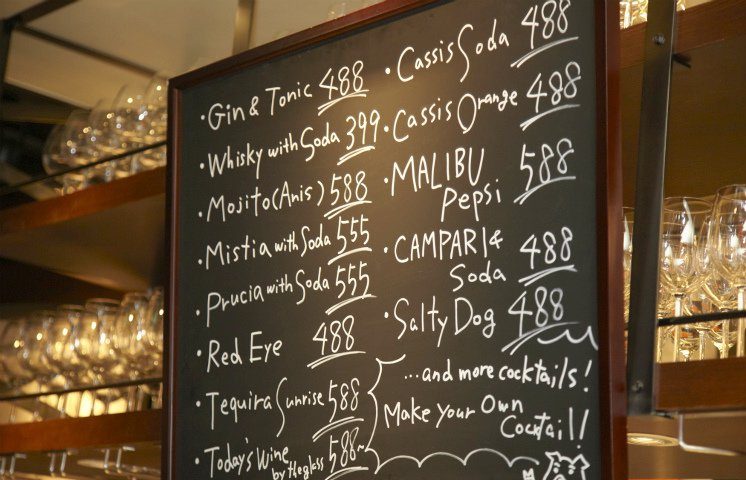 ・Gin & Tonic 488
・Whisky with Soda 399
・Mojito(Anis) 588
・Mistia with Soda 555
・Prucia with Soda 555
・Red Eye 488
・Tequira Sunrise 588
・Today's Wine
by the glass 588~
・Cassis Soda 488
・Cassis Orange 488
・MALIBU
Pepsi 588
・CAMPARI &
Soda 488
・Salty Dog 488
...and more cocktails!
Make Your Own
Cocktail!